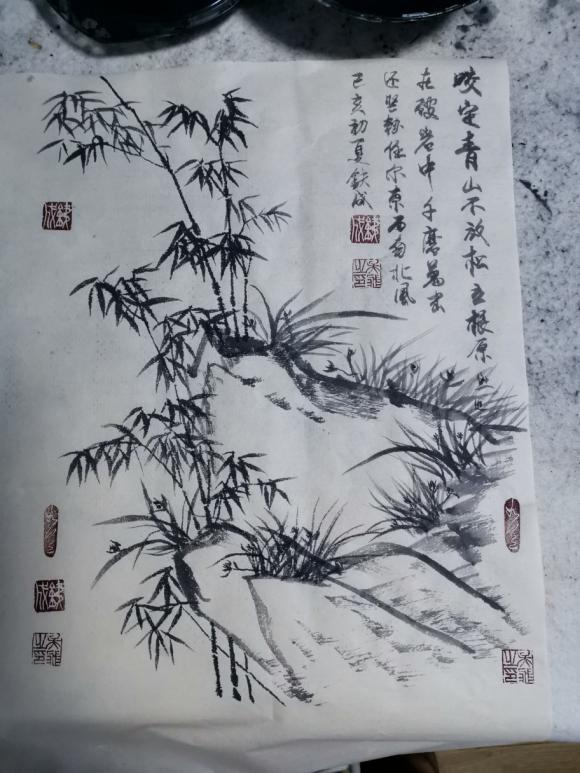 咬定青山不放松立根原
在破岩中千磨萬击
还坚劲任尔东西南北风
己亥初夏铁成